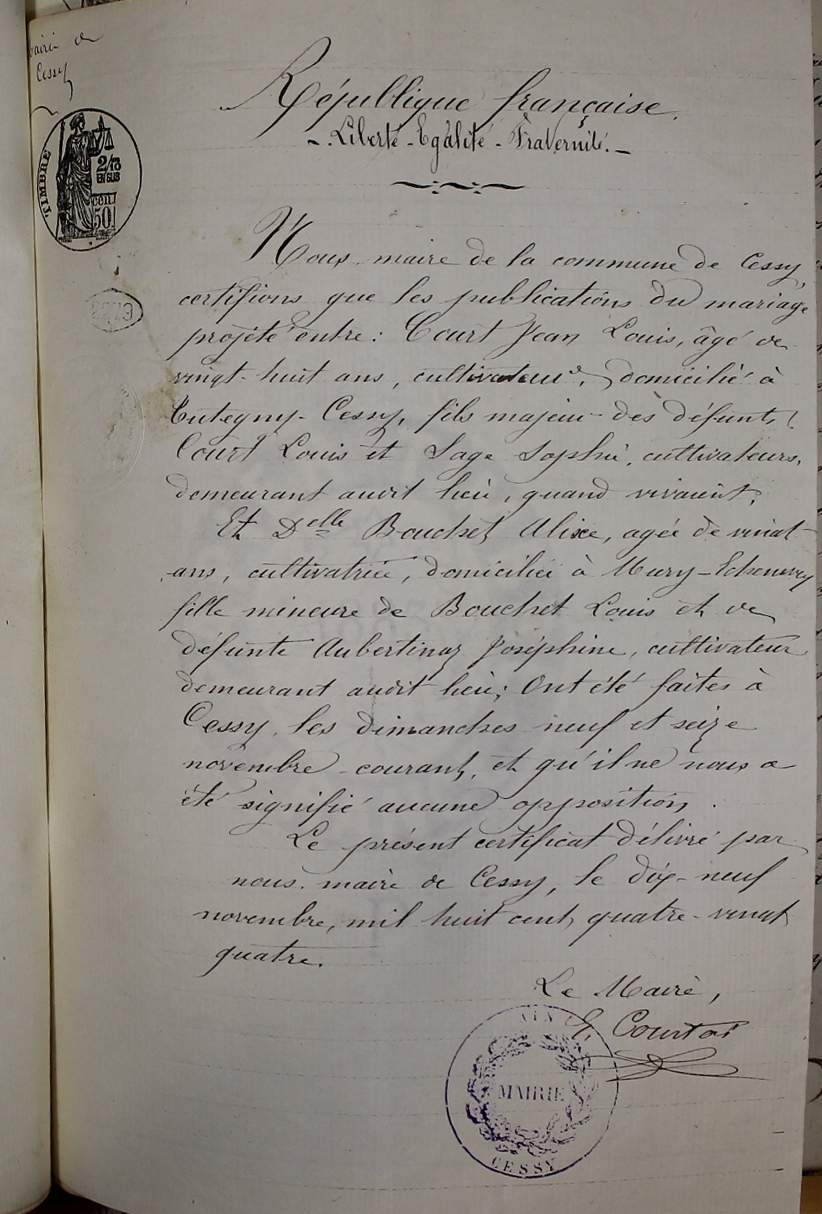 Mairie de
Cessy
TIMBRE
2/10
EN SUS
50
République française.
Liberté - Egalité - Fraternité.
Nous maire de la commune de Cessy,
certifions que les publications du mariage
projeté entre: Court Jean Louis, âgé de
vingt-huit ans, cultivateur, domicilié à
Tutegny-Cessy, fils majeur des défunts
Court Louis et Sage Sophie, cultivateurs,
demeurant audit lieu, quand vivaient;
Et Delle Bouchet Alixe, agée de vingt
ans, cultivatrice, domiciliée à Mury-Echenevex
fille mineure de Bouchet Louis et de
défunte Aubertinaz Joséphine, cultivateur
demeurant audit lieu; Ont été faites à
Cessy, les dimanches neuf et seize
novembre courant, et qu'il ne nous a
été signifié aucune opposition.
Le présent certificat délivré par
nous, maire de Cessy, le dix-neuf
novembre, mil huit cent quatre-vingt
quatre.
Le Maire,
Courtois
AIN
MAIRIE
CESSY